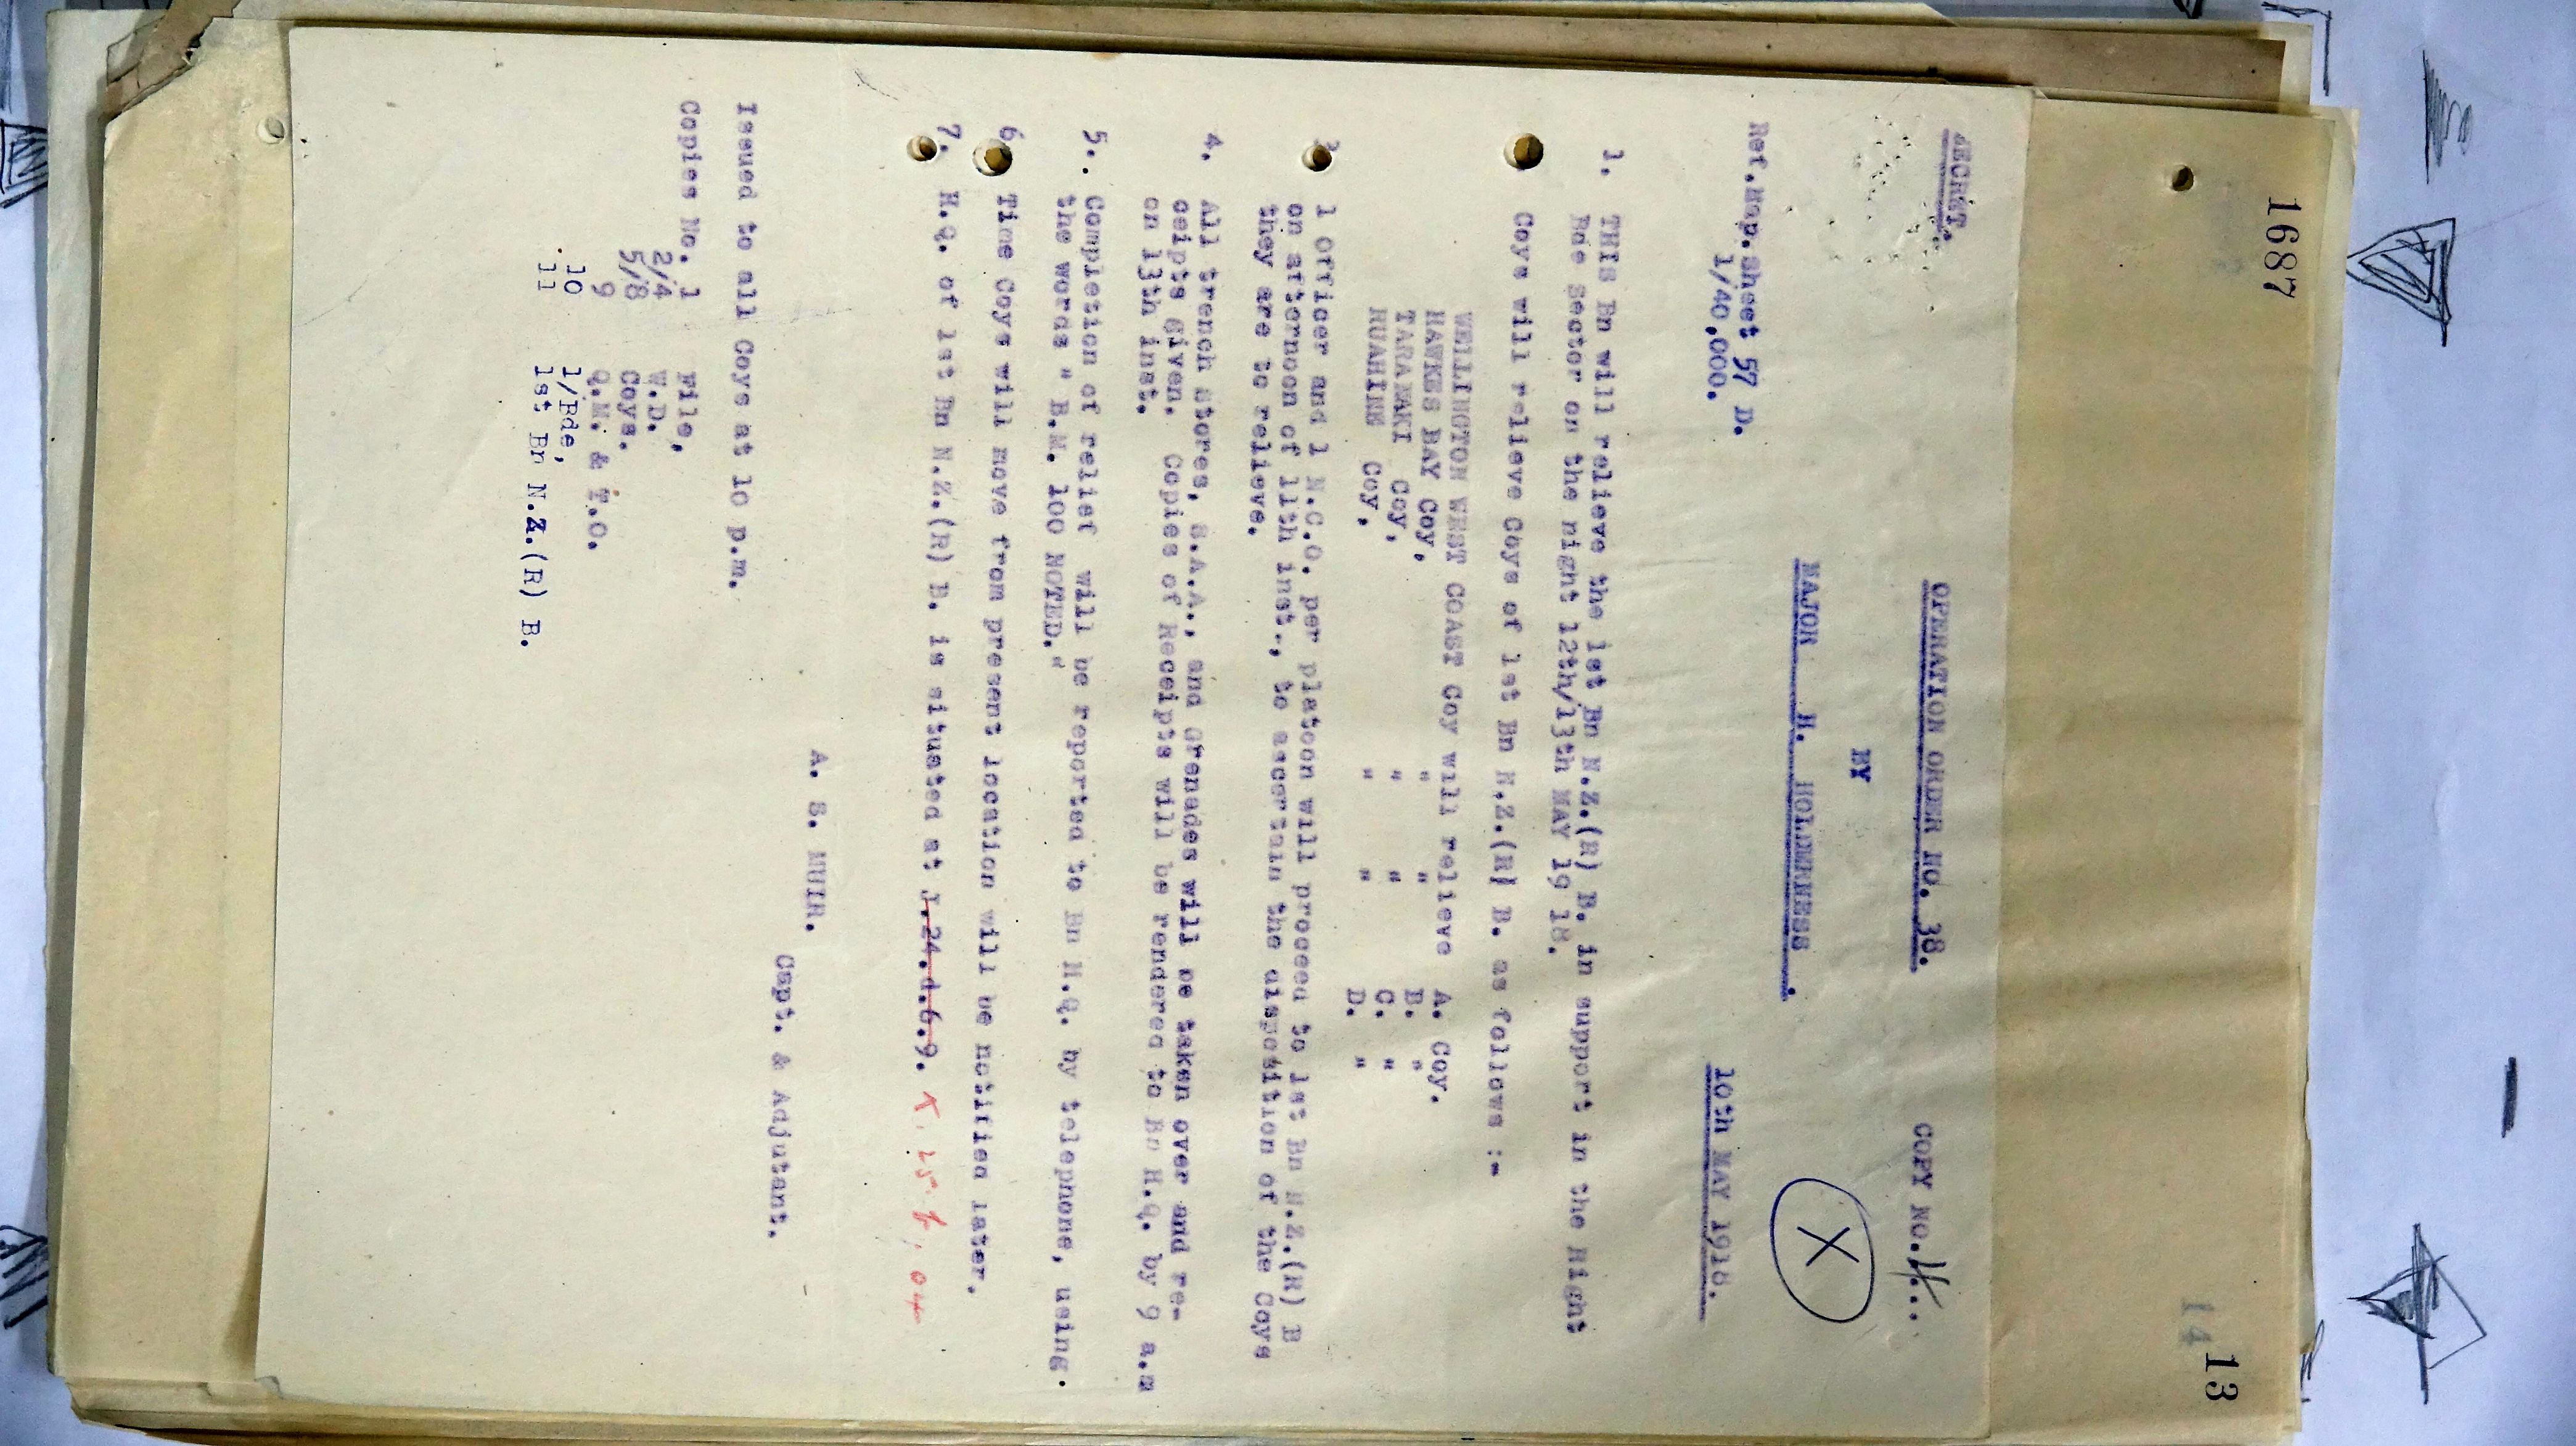 1687
13
14
SECRET.
OPERATION ORDER NO. 38.
COPY NO. 4...
BY
MAJOR H. HOLDERNESS .
X
Ref.Map.Sheet 57 D.
1/40,000.
10th MAY 1918.
1. THIS Bn will relieve the 1st Bn N.Z.(R) B. in support in the Right
Bde Sector on the night 12th/13th MAY 19 18.
Coys will relieve Coys of 1st Bn N.Z.(R) B. as follows :-
WELLINGTON WEST COAST Coy will relieve A. Coy.
HAWKES BAY Coy, " " B. "
TARANAKI Coy, " " C. "
RUAHINE Coy, " " D. "
3 1 officer and 1 N.C.O. per platoon will proceed to 1st Bn N.Z.(R) B
on afternoon of 11th inst., to ascertain the disposition of the Coys
they are to relieve.
4. All trench stores, S.A.A., and Grenades will be taken over and re-
ceipts given. Copies of Receipts will be rendered to Bn H.Q. by 9 a.m
on 13th inst.
5.. Completion of relief will be reported to Bn H.Q. by telephone, using.
the words " B.M. 100 NOTED."
6 Time Coys will move from present location will be notified later.
7. H.Q. of 1st Bn N.Z.(R) B. is situated at J.24.d.6.9. K. 25. b. 04
A. S. MUIR.
Capt. & Adjutant.
Issued to all Coys at 10 p.m.
Copies No. 1 File,
2/4 W.D.
5/8 Coys.
9 Q.M. & T.O.
10 1/Bde,
11 1st Bn N.Z.(R) B.